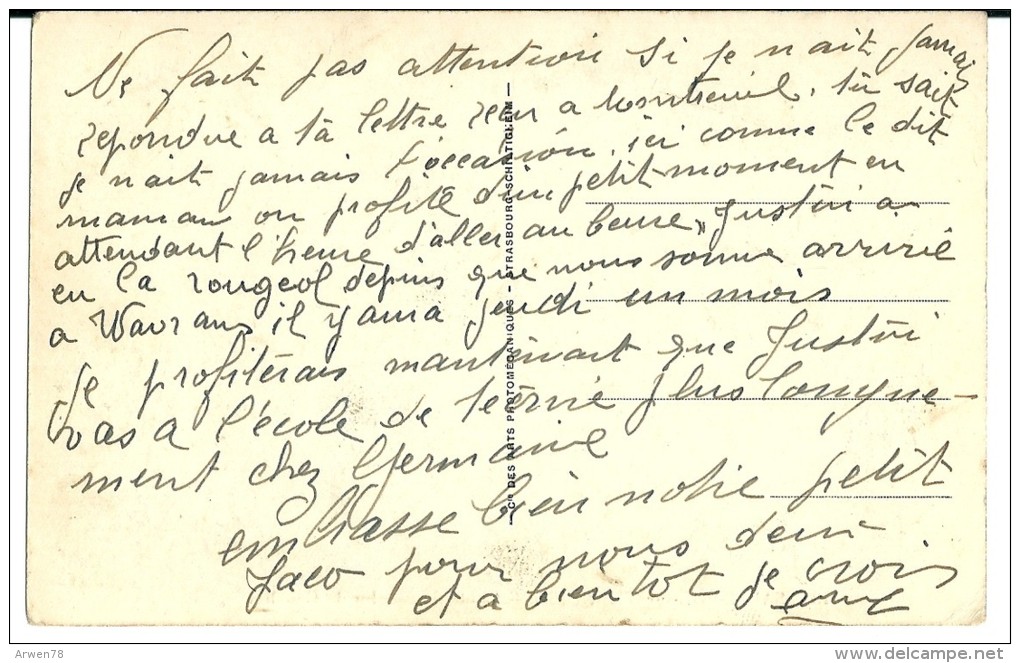 Ne fait pas attention si je nait jamais
repondue a ta lettre recu a Montreuil, tu sait
je nait jamais l'occasion, ici comme le dit
maman on profite d'un petit moment en
attendant l'heure d'aller au beure, Justin a
eu la rougeol depuis que nous somme arrivé
a Wavrans il y aura jeudi un mois
je profiterais maintenant que Justin
vas a l'école de t'écrire plus longue-
ment chez Germaine
embrasse bien notre petit
Jaco pour nous deux
et a bientot je crois
— Cie DES ARTS PHOTOMÉCANIQUES - STRASBOURG-SCHILTIGHEIM —
Arwen78
http://www.delcampe.net